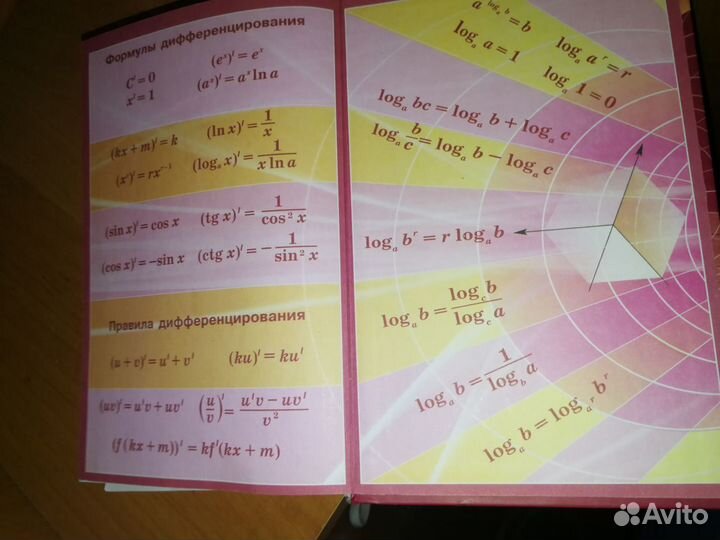 Формулы дифференцирования
C' = 0
(eˣ)' = eˣ
x' = 1
(aˣ)' = aˣ ln a
(kx + m)' = k
(ln x)' = 1/x
(xʳ)' = rxʳ⁻¹
(logₐ x)' = 1/(x ln a)
(sin x)' = cos x
(tg x)' = 1/cos² x
(cos x)' = −sin x
(ctg x)' = −1/sin² x
Правила дифференцирования
(u + v)' = u' + v'
(ku)' = ku'
(uv)' = u'v + uv'
(u/v)' = (u'v − uv')/v²
(f(kx + m))' = kf'(kx + m)
a^(logₐ b) = b
logₐ a = 1
logₐ aʳ = r
logₐ 1 = 0
logₐ bc = logₐ b + logₐ c
logₐ b/c = logₐ b − logₐ c
logₐ bʳ = r logₐ b
logₐ b = log_c b / log_c a
logₐ b = 1/log_b a
logₐ b = log_(aʳ) bʳ
Avito